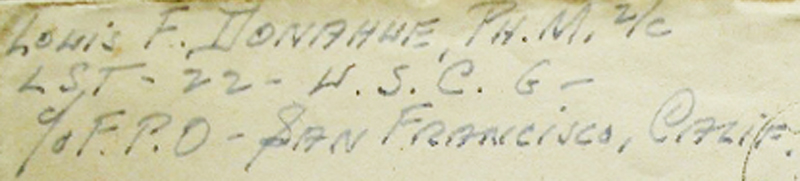 Louis F. Donahue, Ph.M. 2/c
LST - 22 - U.S.C.G -
c/o F.P.O - San Francisco, Calif.